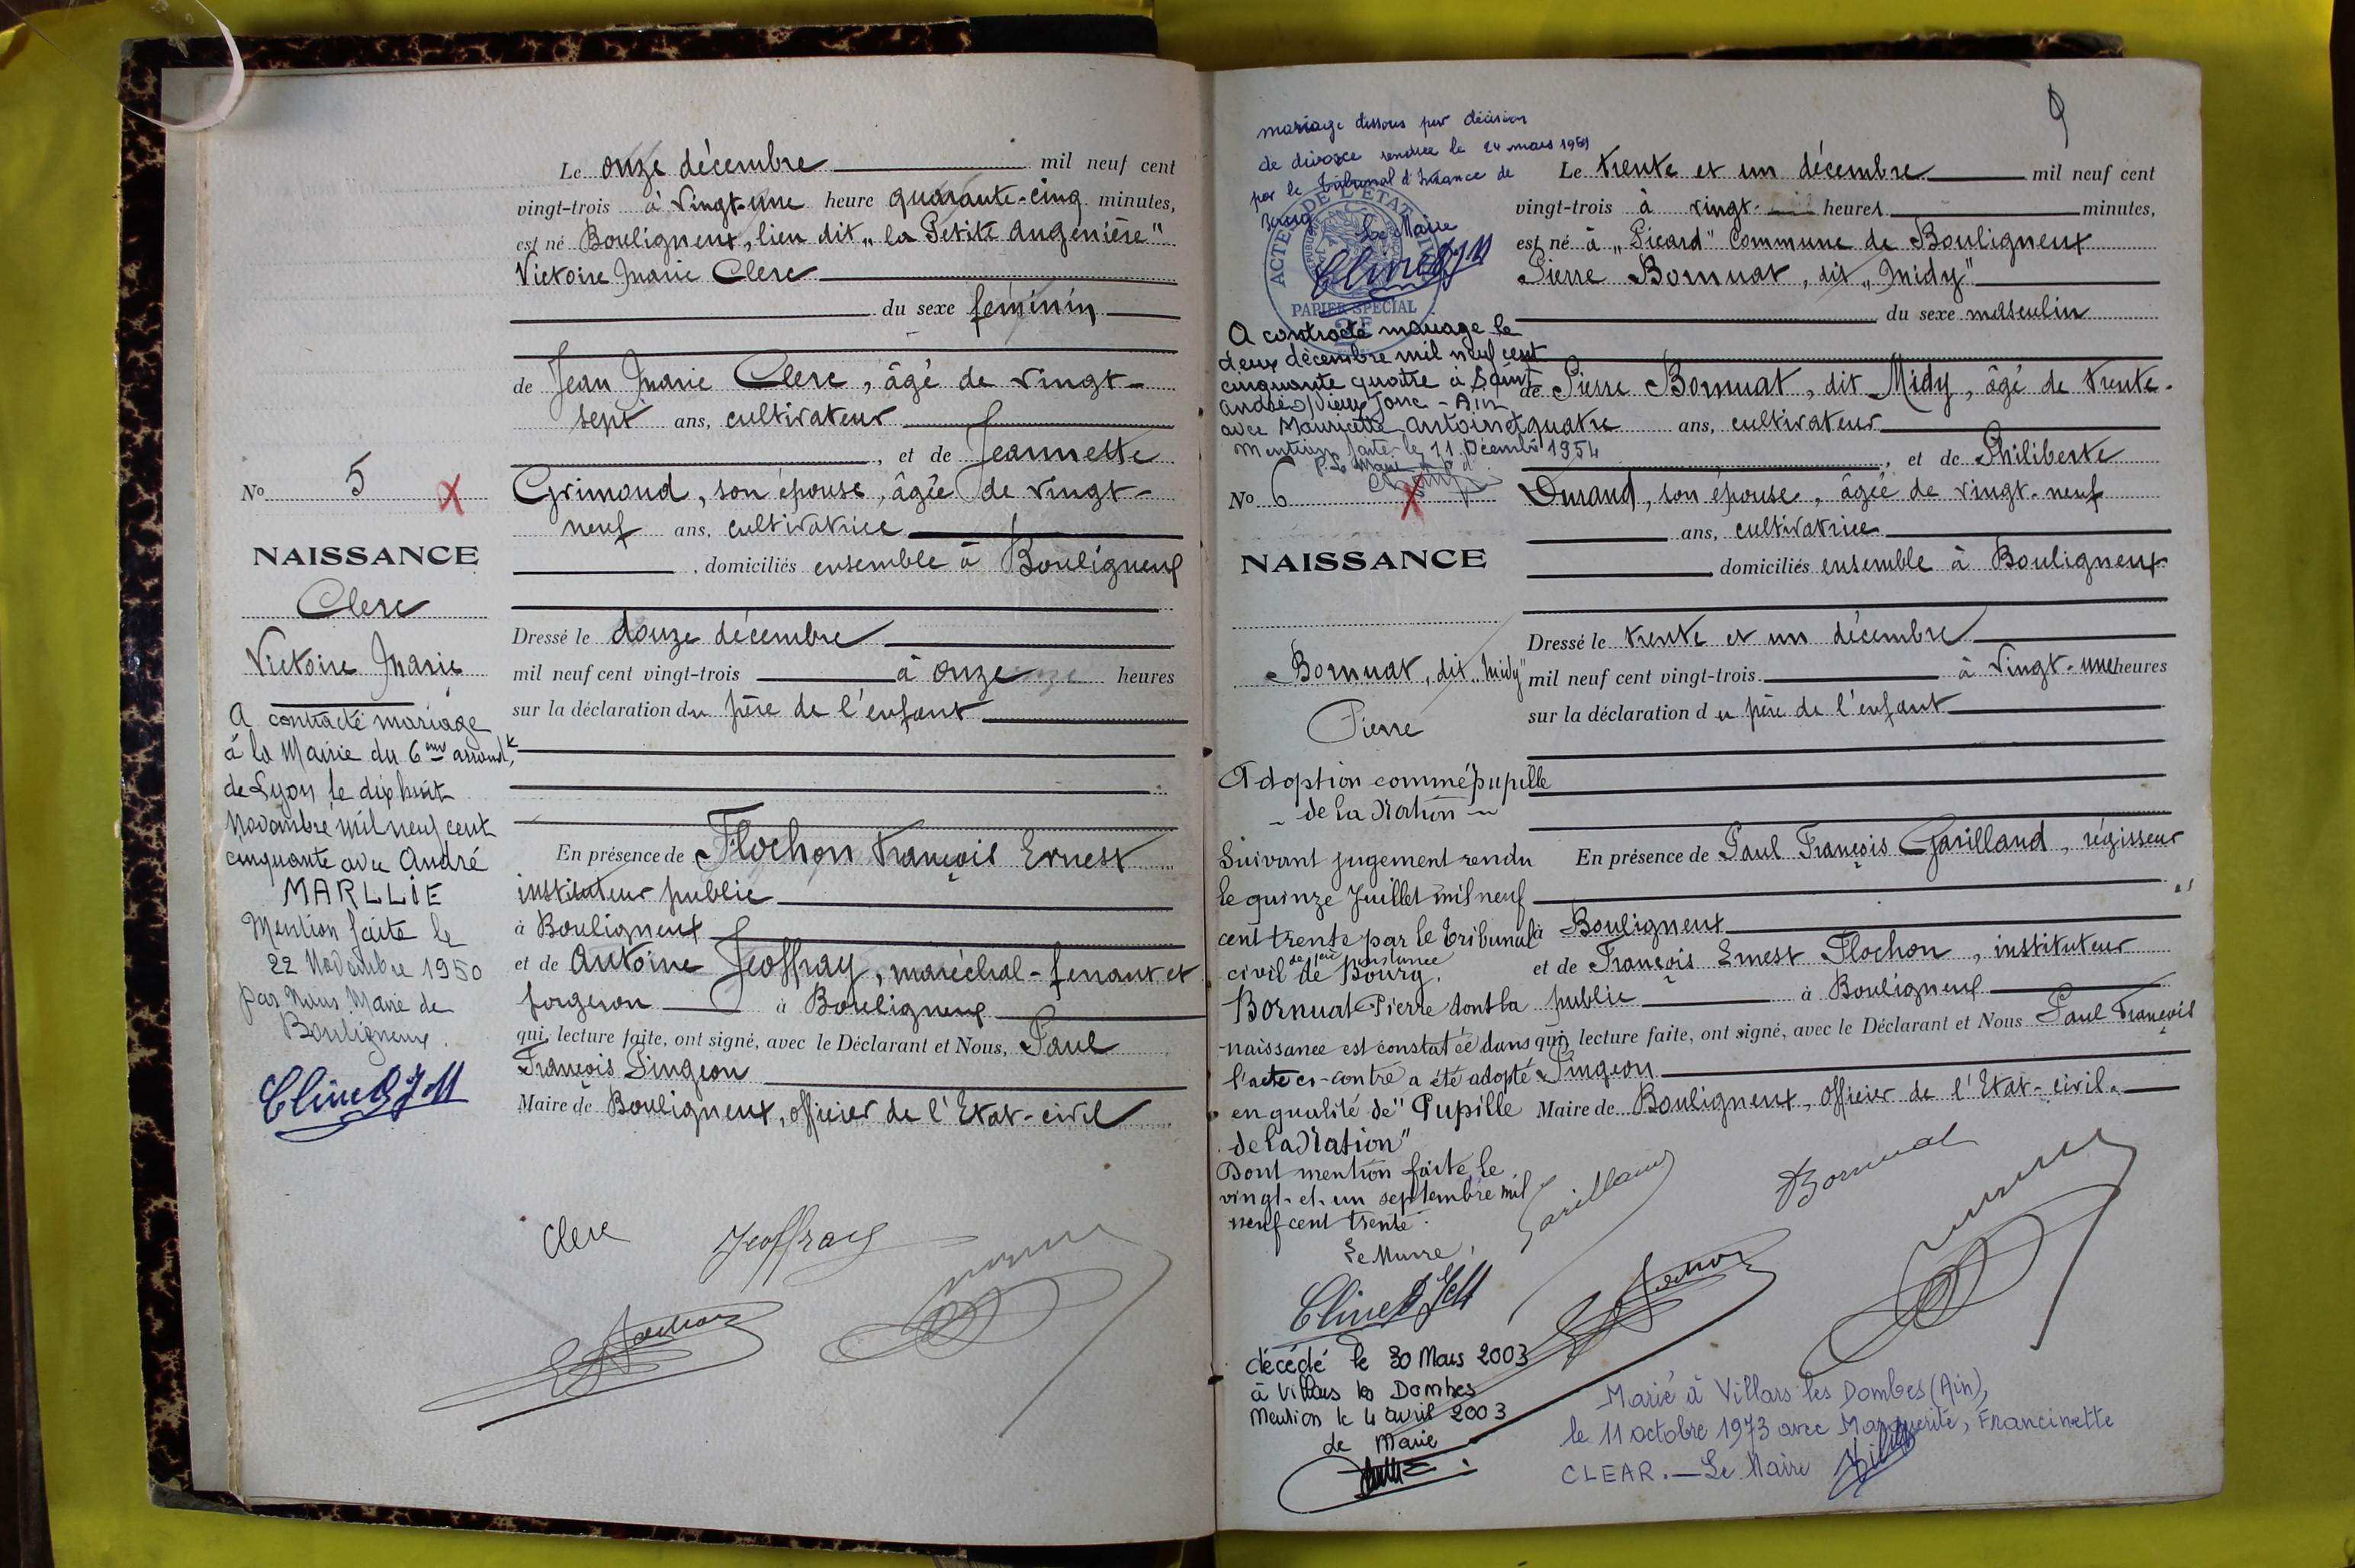 Le onze décembre mil neuf cent
vingt-trois à vingt-une heure quarante-cinq minutes,
est né Bouligneux, lieu dit „la Petite Augenière"
Victoire Marie Clerc
du sexe féminin
de Jean Marie Clerc, âgé de vingt-
sept ans, cultivateur
, et de Jeannette
Grimond, son épouse, âgée de vingt-
neuf ans, cultivatrice
, domiciliés ensemble à Bouligneux
Dressé le douze décembre
mil neuf cent vingt-trois à onze heures
sur la déclaration du père de l'enfant
En présence de Flochon François Ernest
instituteur public
à Bouligneux
et de Antoine Jeoffray, maréchal-ferrant et
forgeron à Bouligneux
qui, lecture faite, ont signé, avec le Déclarant et Nous, Paul
François Pingeon
Maire de Bouligneux, officier de l'Etat-civil
Clerc Jeoffray
No 5 X
NAISSANCE
Clerc
Victoire Marie
A contracté mariage
à la Mairie du 6eme arrondt,
de Lyon le dix huit
Novembre mil neuf cent
cinquante avec André
MARLLIE
Mention faite le
22 Novembre 1950
par Nous Maire de
Bouligneux.
9
mariage dissous par décision
de divorce rendue le 24 mars 1959
par le Tribunal d'Instance de
Bourg
Le Maire
ACTE DE L'ETAT CIVIL
PAPIER SPECIAL
A contracté mariage le
deux décembre mil neuf cent
cinquante quatre à Saint
André s/ Vieux Jonc - Ain
avec Mauricette Antoinet
Mention faite le 11 Décembre 1954
No 6 X
NAISSANCE
Bornuat, dit „Midy"
Pierre
Adoption comme pupille
- de la Nation -
Suivant jugement rendu
le quinze Juillet mil neuf
cent trente par le tribunal
civil de 1ère instance de Bourg.
Bornuat Pierre dont la
naissance est constatée dans
l'acte ci-contre a été adopté
en qualité de "Pupille
de la Nation"
Dont mention faite le
vingt-et-un septembre mil
neuf cent trente.
Le Maire,
décédé le 30 Mars 2003
à Villars les Dombes
Mention le 4 avril 2003
de Mairie
Le trente et un décembre mil neuf cent
vingt-trois à vingt heures minutes,
est né à „Picard" commune de Bouligneux
Pierre Bornuat, dit „Midy"
du sexe masculin
de Pierre Bornuat, dit Midy, âgé de trente-
quatre ans, cultivateur
, et de Philiberte
Durand, son épouse, âgée de vingt-neuf
ans, cultivatrice
domiciliés ensemble à Bouligneux
Dressé le trente et un décembre
mil neuf cent vingt-trois à vingt-une heures
sur la déclaration du père de l'enfant
En présence de Paul François Garilland, régisseur
à Bouligneux
et de François Ernest Flochon, instituteur
public à Bouligneux
qui, lecture faite, ont signé, avec le Déclarant et Nous Paul François
Pingeon
Maire de Bouligneux, officier de l'Etat-civil.
Garilland Bornuat
Marié à Villars les Dombes (Ain),
le 11 octobre 1973 avec Marguerite, Francinette
CLEAR. — Le Maire